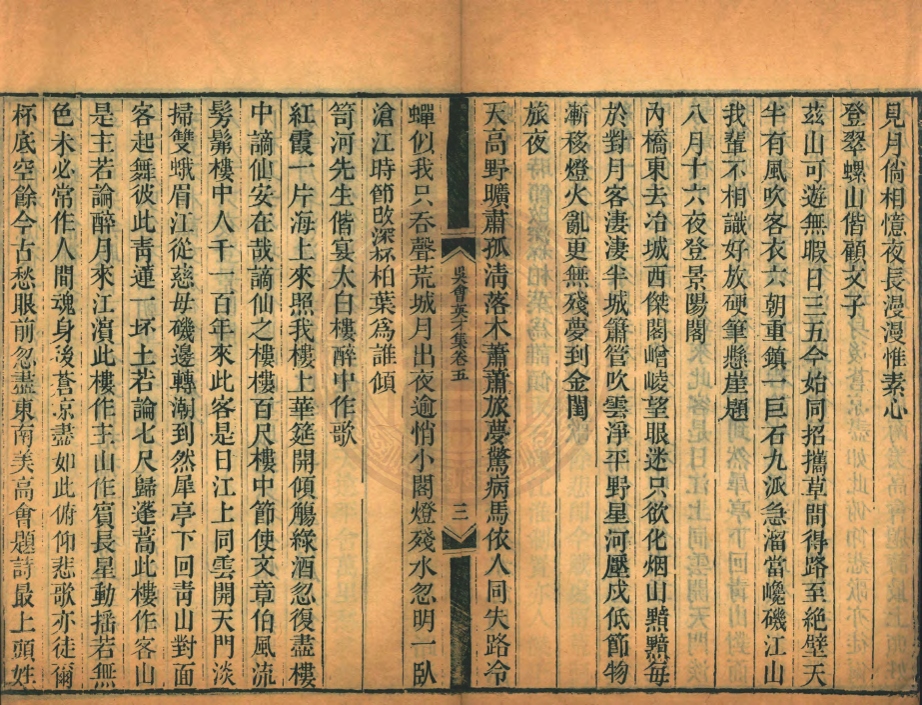 見月倘相憶夜長漫漫惟素心
登翠螺山偕顧文子
茲山可遊無暇日三五今始同招攜草間得路至絕壁天
半有風吹客衣六朝重鎮一巨石九派急溜當巉磯江山
我輩不相識好放硬筆懸崖題
八月十六夜登景陽閣
內橋東去冶城西傑閣崢崚望眼迷只欲化烟山黯黯每
於對月客淒淒半城簫管吹雲淨平野星河壓戍低節物
漸移燈火亂更無殘夢到金閨
旅夜
天高野曠肅孤淸落木蕭蕭旅夢驚病馬依人同失路冷
吳會英才集卷五
三
蟬似我只吞聲荒城月出夜逾悄小閣燈殘水忽明一臥
滄江時節改深霖柏葉爲誰傾
笥河先生偕宴太白樓醉中作歌
紅霞一片海上來照我樓上華筵開傾觴綠酒忽復盡樓
中謫仙安在哉謫仙之樓樓百尺樓中節使文章伯風流
髣髴樓中人千一百年來此客是日江上同雲開天門淡
掃雙蛾眉江從慈母磯邊轉潮到然犀亭下回靑山對面
客起舞彼此靑蓮一抔土若論七尺歸蓬蒿此樓作客山
是主若論醉月來江濱此樓作主山作賓長星動搖若無
色未必常作人間魂身後蒼凉盡如此俯仰悲歌亦徒爾
杯底空餘今古愁眼前忽盡東南美高會題詩最上頭姓